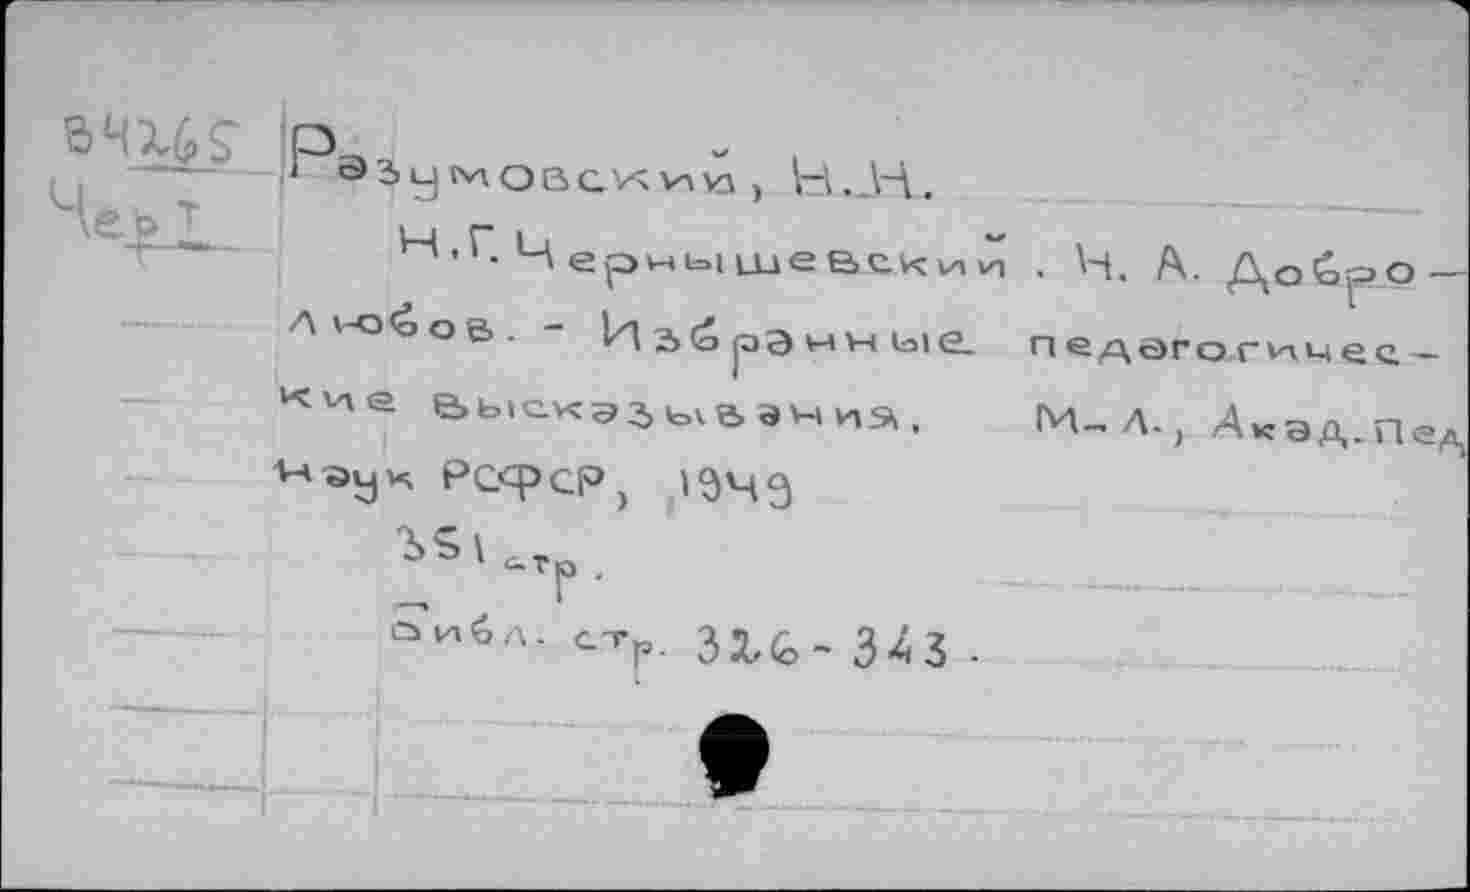 В4265
Чер I
Разумовский, Н.Н.
Н.Г. Чернышевский. Н. А. Добро-
любов. - Избранные педагогичес-
кие высказывания. М-Л., Акад. Пед
наук РСФСР, 1949
351 стр.
Библ. стр. 326-343.